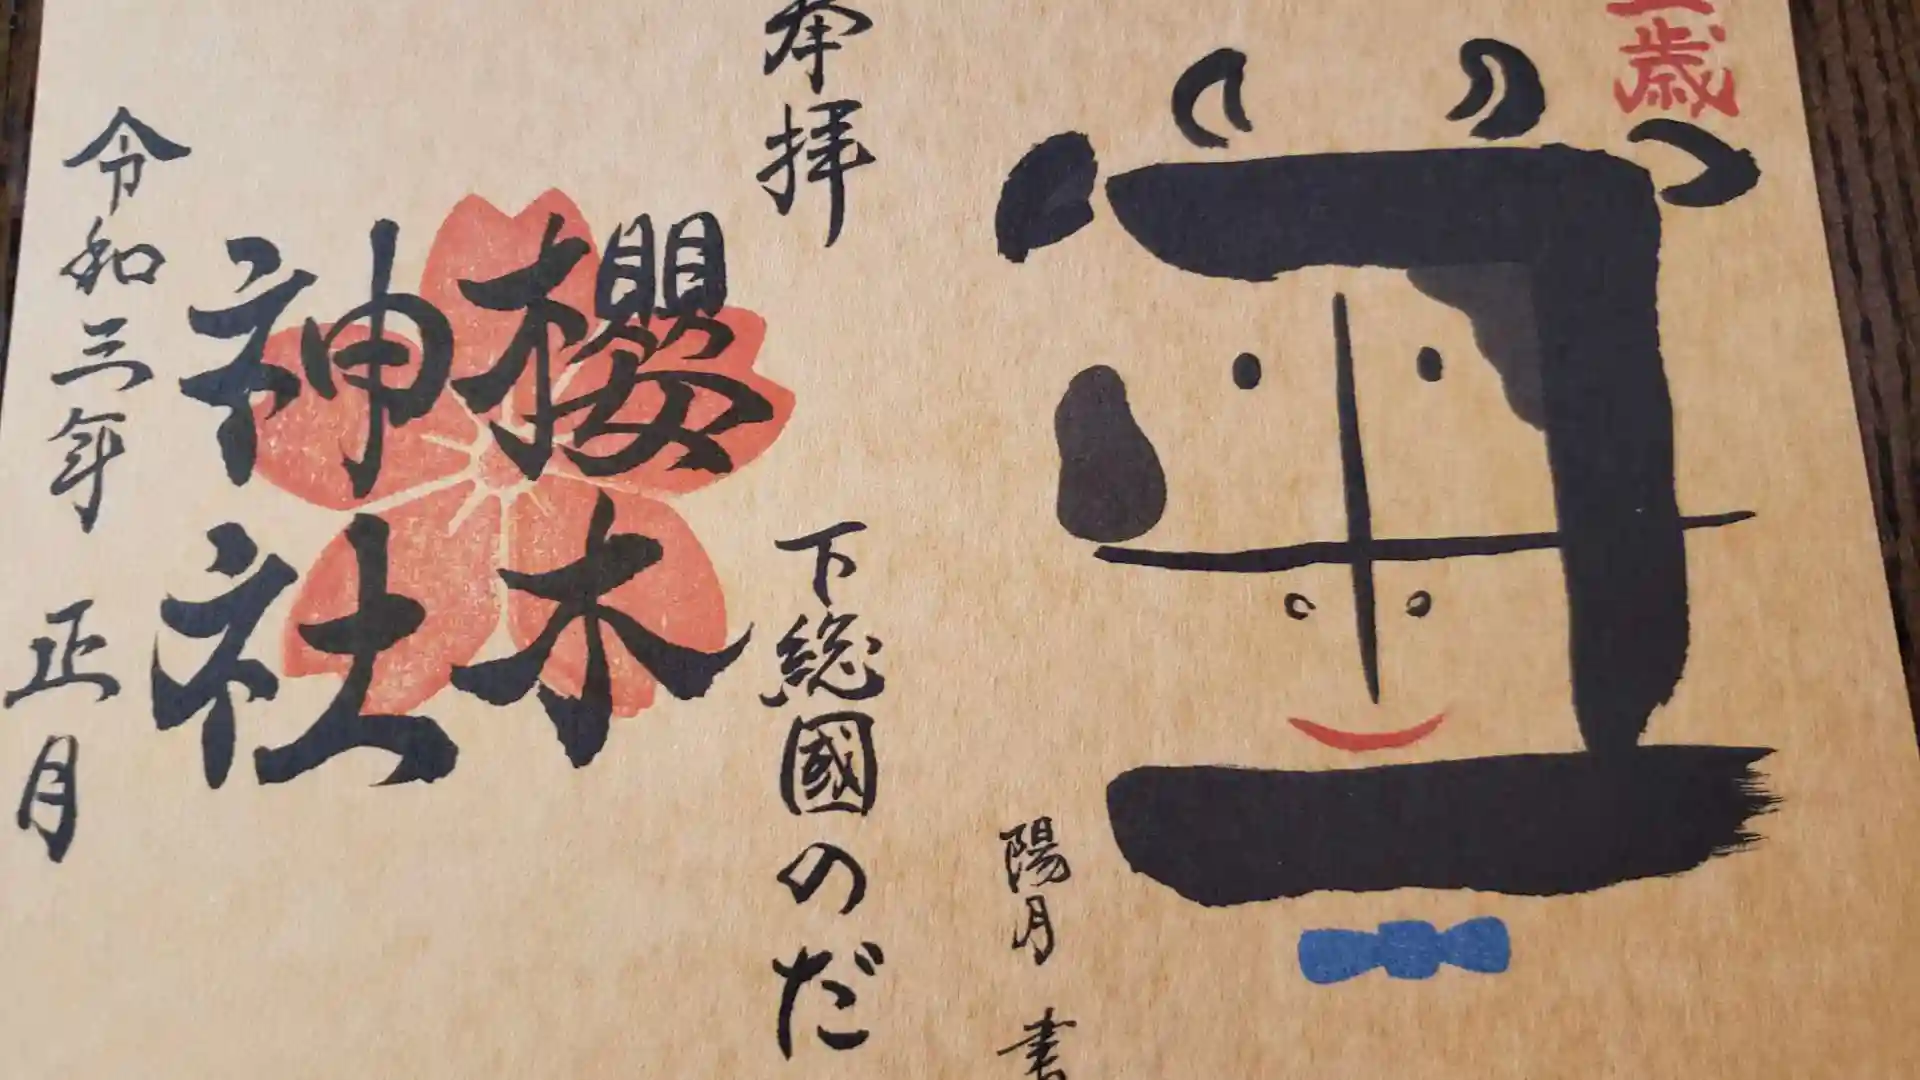 歳
丑
陽月 書
奉拝
下総國のだ
櫻木
神社
令和三年 正月